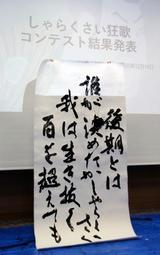 しゃらくさい狂歌
コンテスト結果発表
後期とは
誰が決めたかしゃらくさい
我は生き抜く
百を超えても